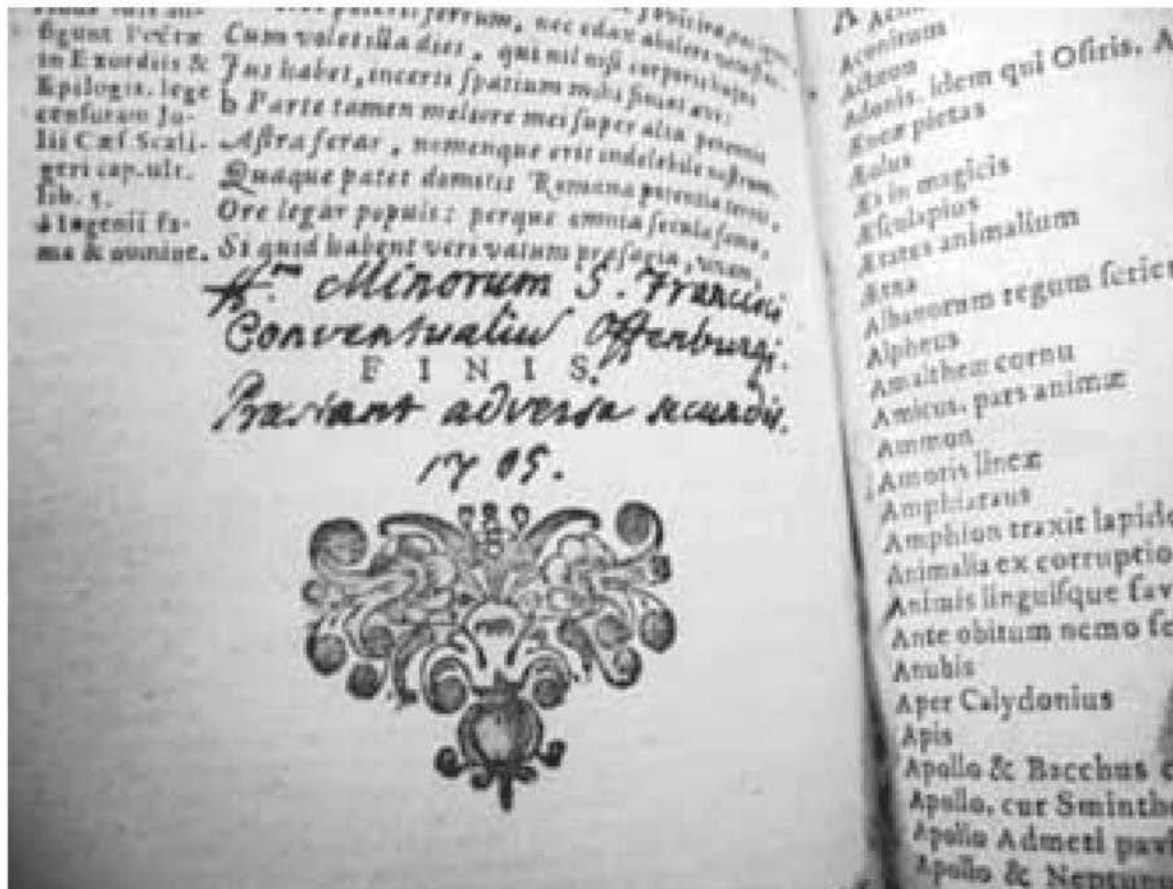 figunt Poetæ
in Exordiis &
Epilogis. lege
censuram Ju-
lii Cæs. Scali-
geri cap. ult.
lib. 5.
a Ingenii fa-
ma & nomine.
ferrum, nec edax abolere
Cum volet illa dies, qui nil nisi corporis hujus
Jus habet, incerti spatium mihi finiat ævi:
b Parte tamen meliore mei super alta perennis
Astra ferar, nomenque erit indelebile nostrum.
Quaque patet domitis Romana potentia terris,
Ore legar populi: perque omnia secula fama,
Si quid habent veri vatum præsagia, vivam.
ff.um Minorum S. Francisci
Conventualiũ Offenburgi.
FINIS.
Præstant adversa secundis.
1705.
Aconitum
Acteon
Adonis. idem qui Osiris. A
Æneæ pietas
Æolus
Æs in magicis
Æsculapius
Ætates animalium
Ætna
Albanorum regum series
Alpheus
Amaltheæ cornu
Amicus. pars animæ
Ammon
Amoris lineæ
Amphiaraus
Amphion traxit lapid
Animalia ex corruptio
Animis linguisque fav
Ante obitum nemo
Anubis
Aper Calydonius
Apis
Apollo & Bacchus
Apollo. cur Sminth
Apollo Admeti pavi
Apollo & Neptun